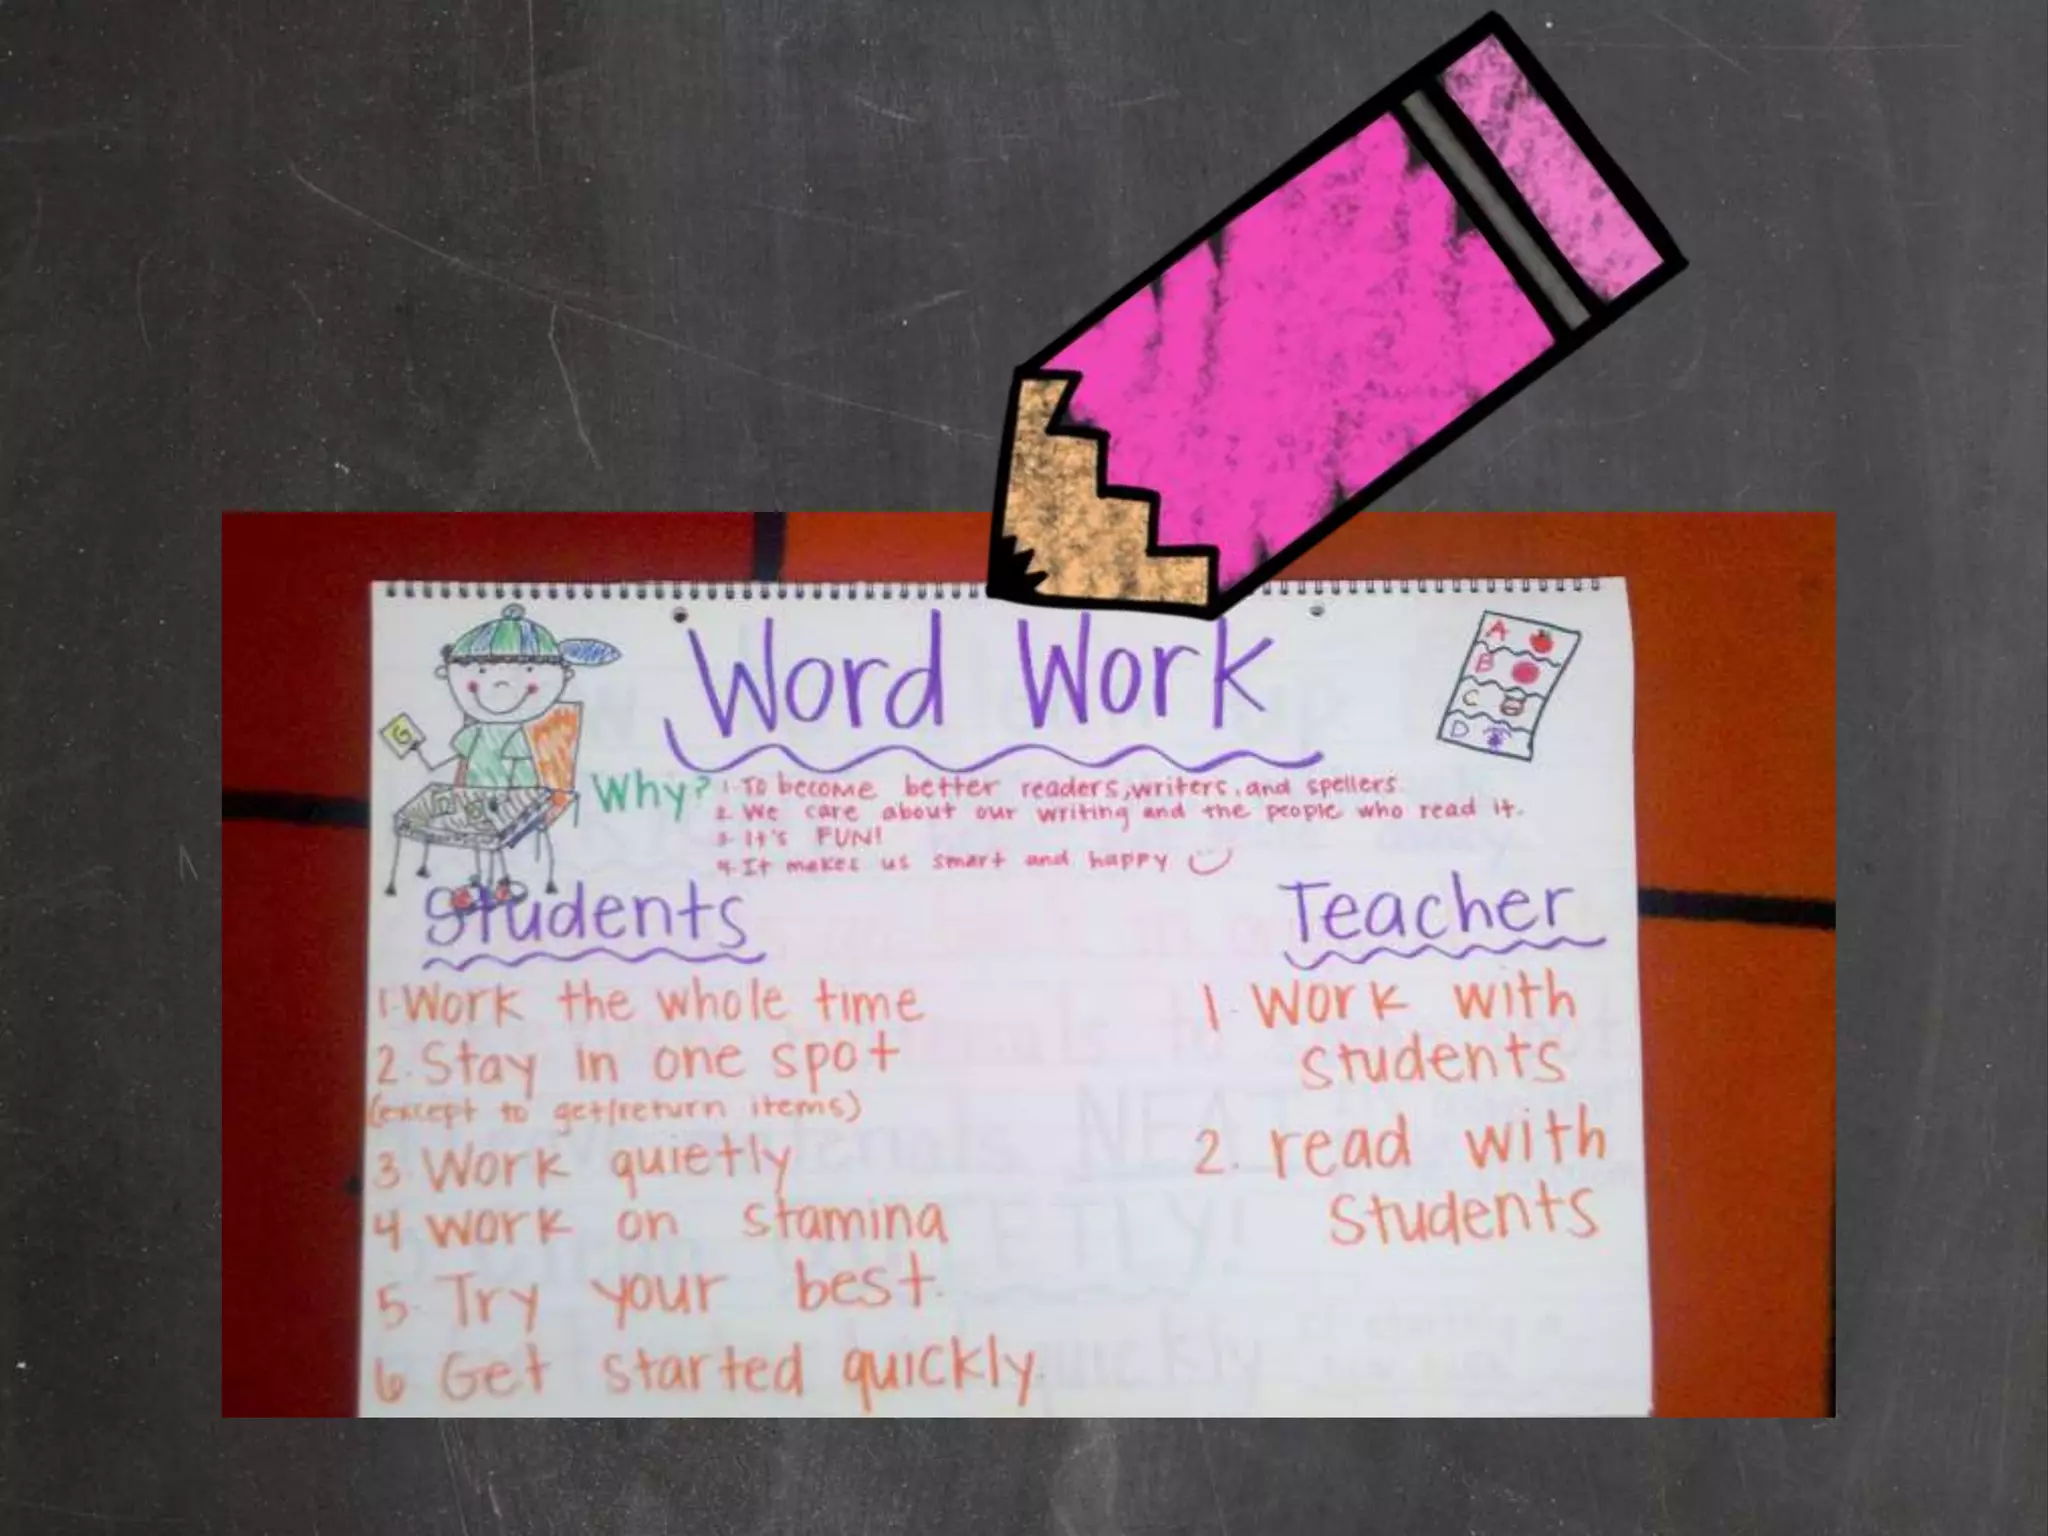 Word Work
Why? 1. To become better readers, writers, and spellers.
2. We care about our writing and the people who read it.
3. It's FUN!
4. It makes us smart and happy
Students
1. Work the whole time
2. Stay in one spot
(except to get/return items)
3. Work quietly
4 work on stamina
5. Try your best.
6 Get started quickly.
Teacher
1. Work with
students
2. read with
Students
G
A
B
C
D